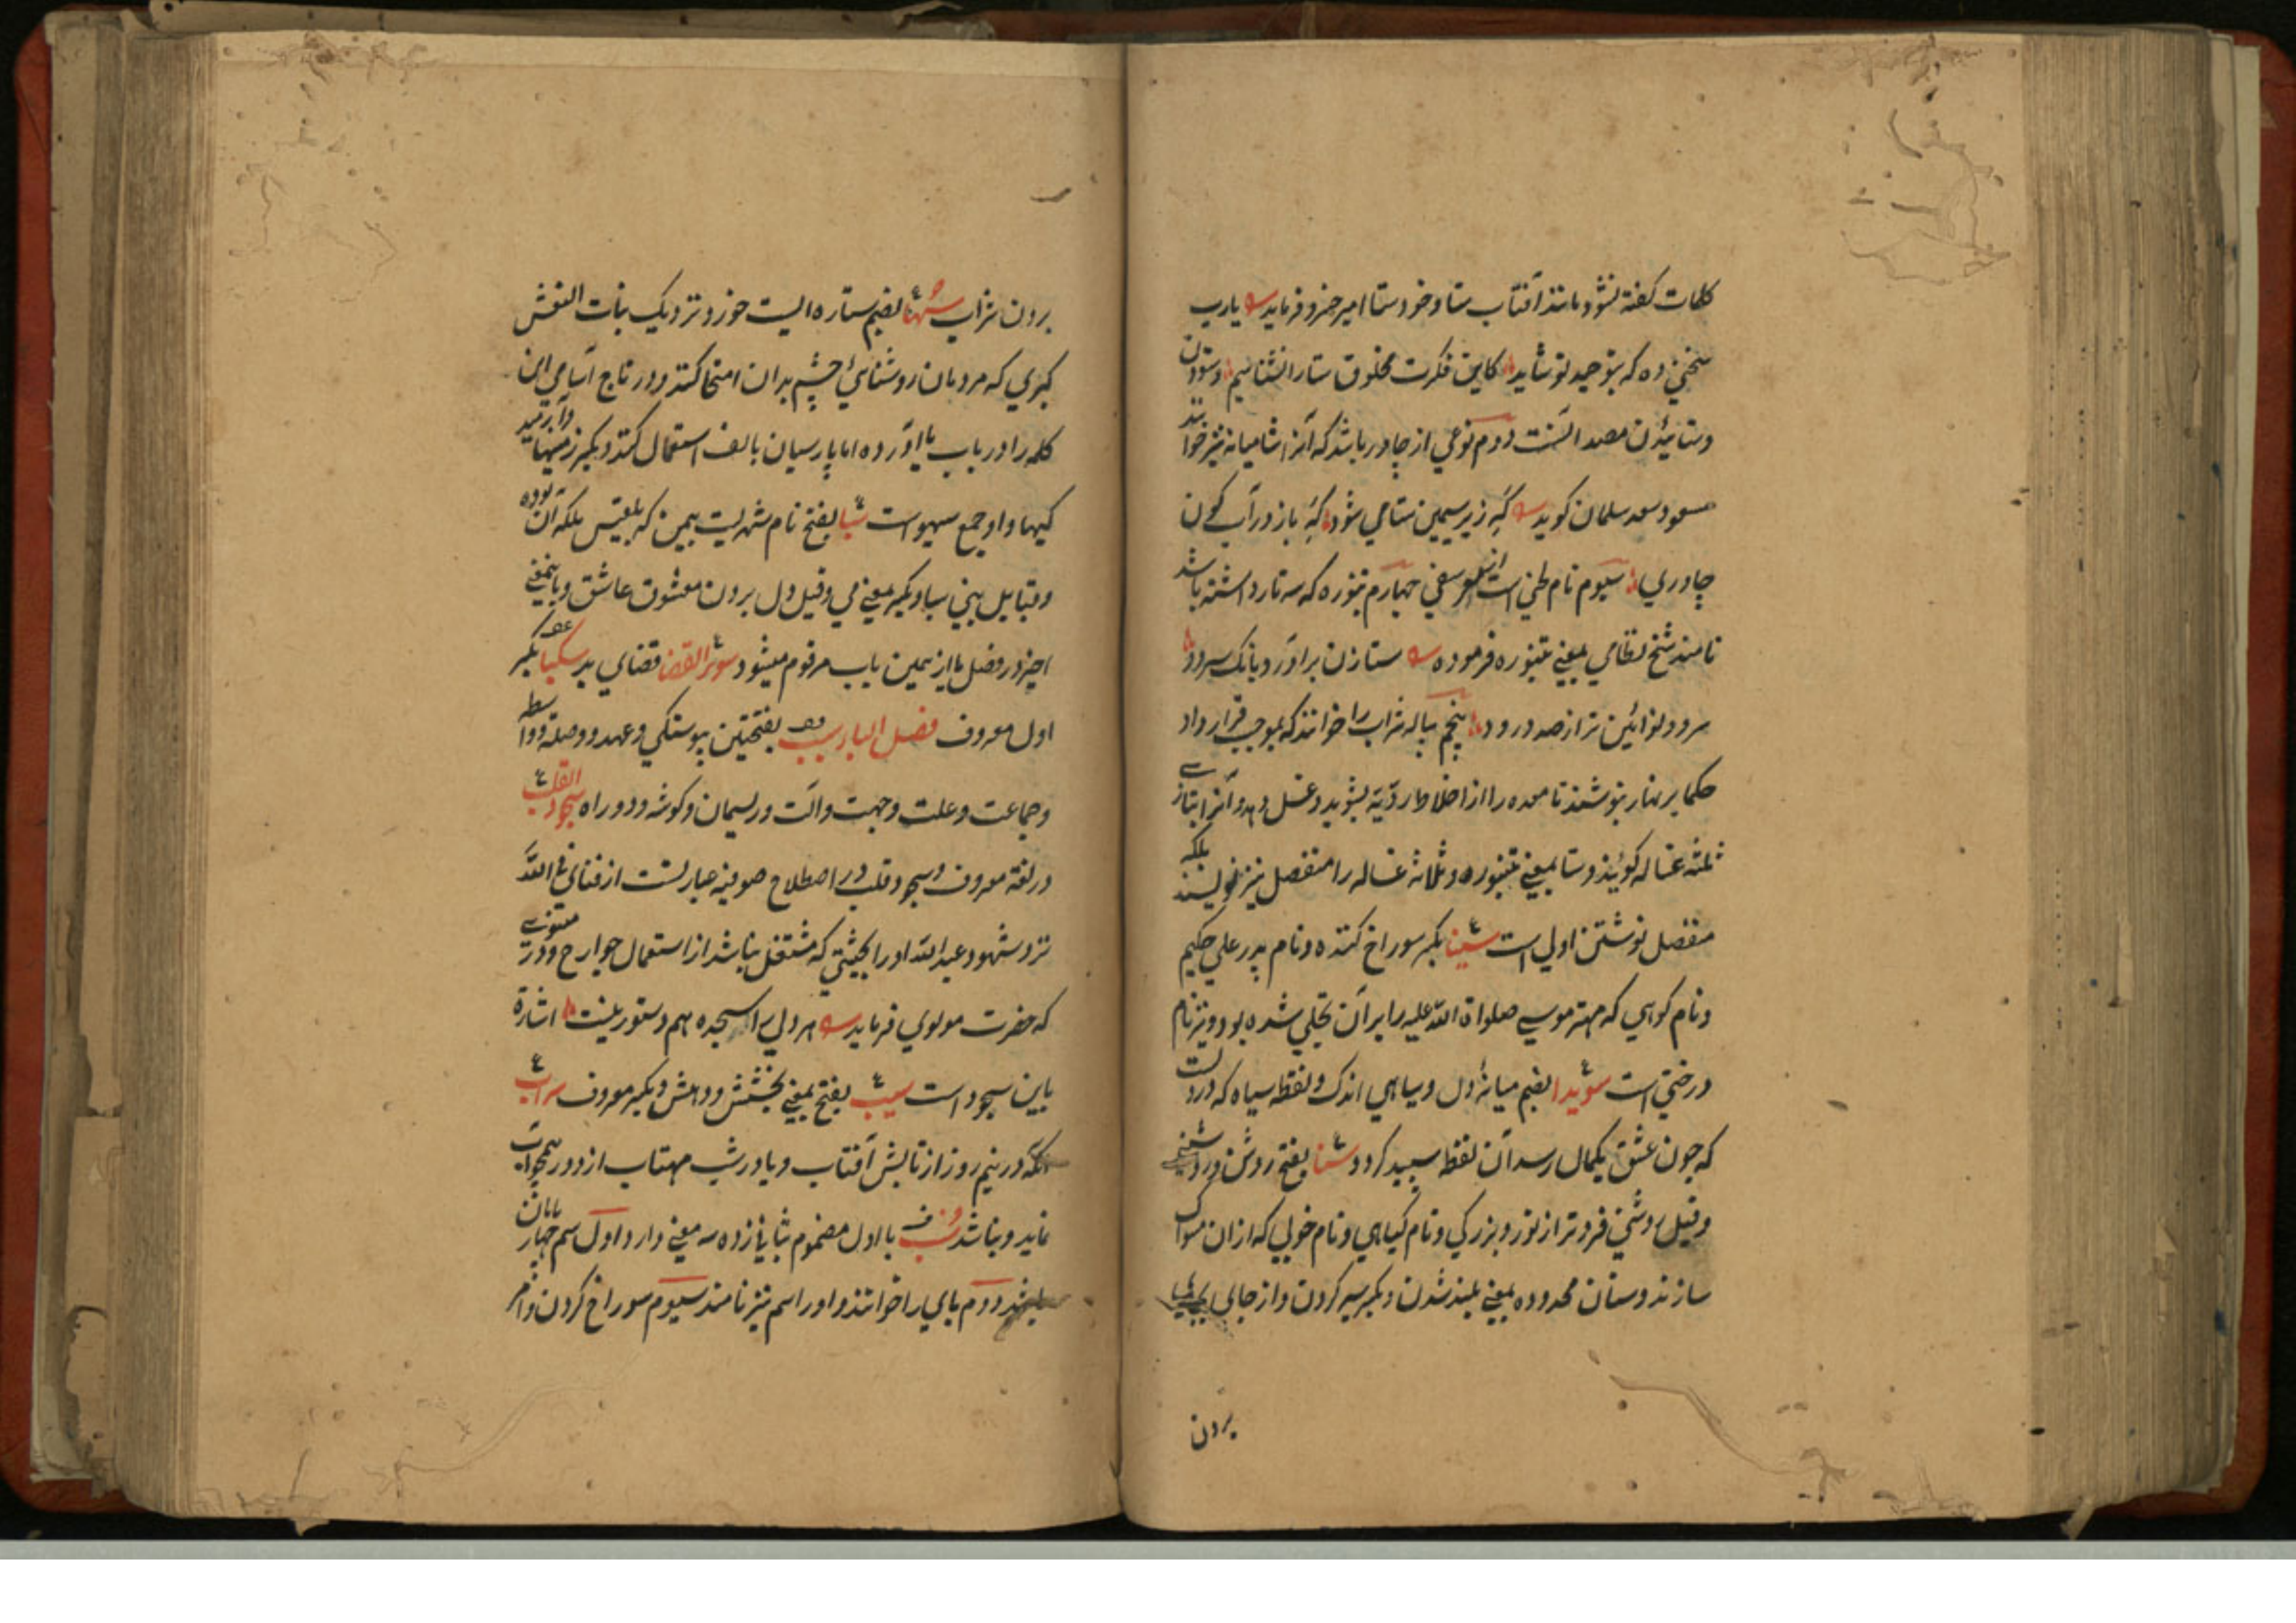 کلمات گفته نشود مانند آفتاب ستا و خود ستا امیر خسرو فرماید یارب
سخنی ده که بتوحید تو شاید کاین فکرت مخلوق ستا را نشناسیم و ستودن
و ستائیدن مصدر الست دوم نوعی از چادر باشد که آنرا شامیانه نیز خوانند
مسعود سعد سلمان گوید گه زیر سیمین ستامی شود گه باز در آب گون
چادری سیوم نام طنی است چهارم تنبوره که سه تار داشته باشد
نامند شیخ نظامی بمعنی تنبوره فرموده ستا زن براورد بانگ سرود
سرود نوائین تر از صد درود پنجم پیاله شراب را خوانند که بموجب قرارداد
حکما بر نهار بنوشند تا معده را از اخلاط ردیه بشوید و غسل دهد و آنرا ستای
ثلثه غساله گویند و ستا بمعنی تنبوره و ثلاثه غساله را منفصل نیز نویسند بلکه
منفصل نوشتن اولی است سینا بکسر سوراخ کننده و نام پدر علی حکیم
و نام کوهی که مهتر موسی صلواة الله علیه را بران تجلی شده بود و نیز نام
درختی است سویدا بضم میانهٔ دل و سیاهی اندک و نقطه سیاه که در دلست
که چون عشق بکمال رسد آن نقطه سپید گردد سنا بفتح روشن و روشنی
و قیل روشنی فروتر از نور و بزرگی و نام گیاهی و نام خوبی که ازان مسواک
سازند و سنان محدوده بمعنی بلند شدن و بکسر سیر کردن و از جای بجای
بردن
بردن شراب سها بضم ستاره ایست خورد نزدیک بنات النعش
کبری که مردمان روشنائی چشم بدان امتحان کنند و در تاج اسامی این
کلمه را در باب یا آورده اما پارسیان بالف استعمال کنند و بکسر زمینها
کیها و او جمع سهو است سبا بفتح نام شهریست بیمن که بلقیس ملکه آن بوده
و قبایل بنی سبا و بکسر بمعنی می و قیل دل بردن معشوق عاشق و باینمعنی
اخیر در فصل یا از همین باب مرقوم میشود سوء القضا قضای بد سکبا بکسر
اول معروف فصل الباء سبب بفتحتین پیوستگی و عهد و وصلة و واسطه
و جماعت و علت و جهت و الت و ریسمان و گوشه و دو راه سجود القلب
در لغة معروف و سجود قلب در اصطلاح صوفیه عبارتست از فنای فی الله
نزد شهود عبد الله اورا بحیثیتی که مشتغل نباشد از استعمال جوارح و در مثنوی
که حضرت مولوی فرماید هر دلی را سجده هم دستور نیست اشارة
باین سجود است سیب بفتح بمعنی بخشش و دهش و بکسر معروف سراب
آنکه در نیم روز از تابش آفتاب و یا در شب مهتاب از دور همچو آب
نماید و نباشد سنب با اول مضموم بثانی زده سه معنی دارد اول سم چهارپایان
باشد دوم پای را خوانند و اورا سم نیز نامند سیوم سوراخ کردن و امر